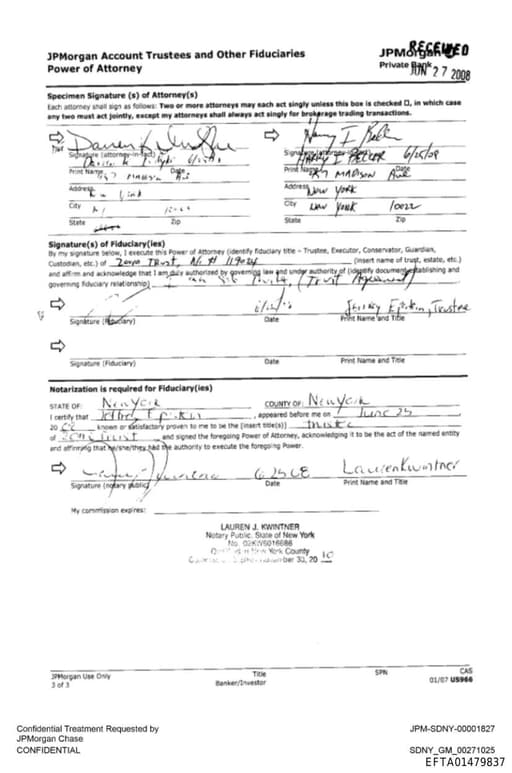 JPMorgan Account Trustees and Other Fiduciaries
Power of Attorney
JPMorgan
Private Bank
RECEIVED
JUN 27 2008
Specimen Signature (s) of Attorney(s)
Each attorney shall sign as follows: Two or more attorneys may each act singly unless this box is checked ☐, in which case
any two must act jointly, except my attorneys shall always act singly for brokerage trading transactions.
Signature (attorney-in-fact) Date
Print Name
457 Madison Ave
Address
New York
City
NY
State Zip
Harry I Beller
Signature (attorney-in-fact) Date
HARRY I BELLER 6/25/08
Print Name
457 MADISON Ave
Address
NEW YORK
City
NEW YORK 10022
State Zip
Signature(s) of Fiduciary(ies)
By my signature below, I execute this Power of Attorney (identify fiduciary title – Trustee, Executor, Conservator, Guardian,
Custodian, etc.) of 2000 TRUST, (insert name of trust, estate, etc.)
and affirm and acknowledge that I am duly authorized by governing law and under authority of (identify document establishing and
governing fiduciary relationship) (Trust Agreement)
Jeffrey Epstein, Trustee
Signature (Fiduciary) Date Print Name and Title
Signature (Fiduciary) Date Print Name and Title
Notarization is required for Fiduciary(ies)
STATE OF: New York COUNTY OF: New York
I certify that Jeffrey Epstein, appeared before me on June 25
20 08 known or satisfactory proven to me to be the (insert title(s)) trustee
of Trust and signed the foregoing Power of Attorney, acknowledging it to be the act of the named entity
and affirming that he/she/they had the authority to execute the foregoing Power.
6 25 08 Lauren Kwintner
Signature (notary public) Date Print Name and Title
My commission expires:
LAUREN J. KWINTNER
Notary Public, State of New York
No. 02KW6016686
in New York County
30, 20 10
JPMorgan Use Only Title SPN CAS
3 of 3 Banker/Investor 01/07 US966
Confidential Treatment Requested by
JPMorgan Chase
CONFIDENTIAL
JPM-SDNY-00001827
SDNY_GM_00271025
EFTA01479837